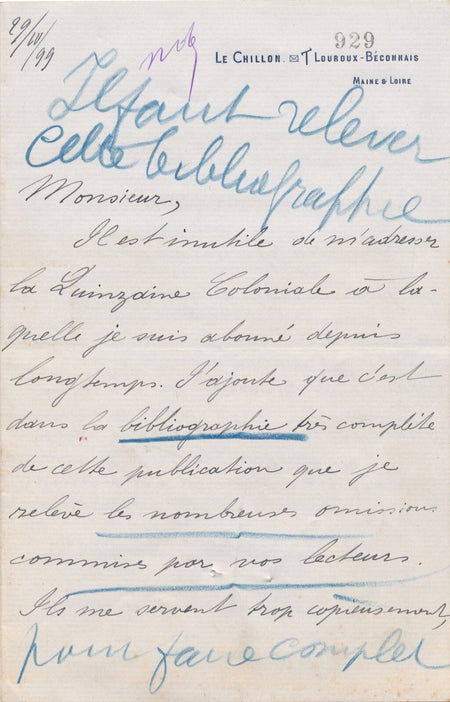 29/IV/99
note
929
LE CHILLON. ✉ T LOUROUX-BÉCONNAIS
MAINE & LOIRE
Il faut relever
cette bibliographie
Monsieur,
Il est inutile de m'adresser
la Quinzaine Coloniale à la-
quelle je suis abonné depuis
longtemps. J'ajoute que c'est
dans la bibliographie très complète
de cette publication que je
relève les nombreuses omissions
commises par vos lecteurs.
Ils me servent trop copieusement,
pour faire complet